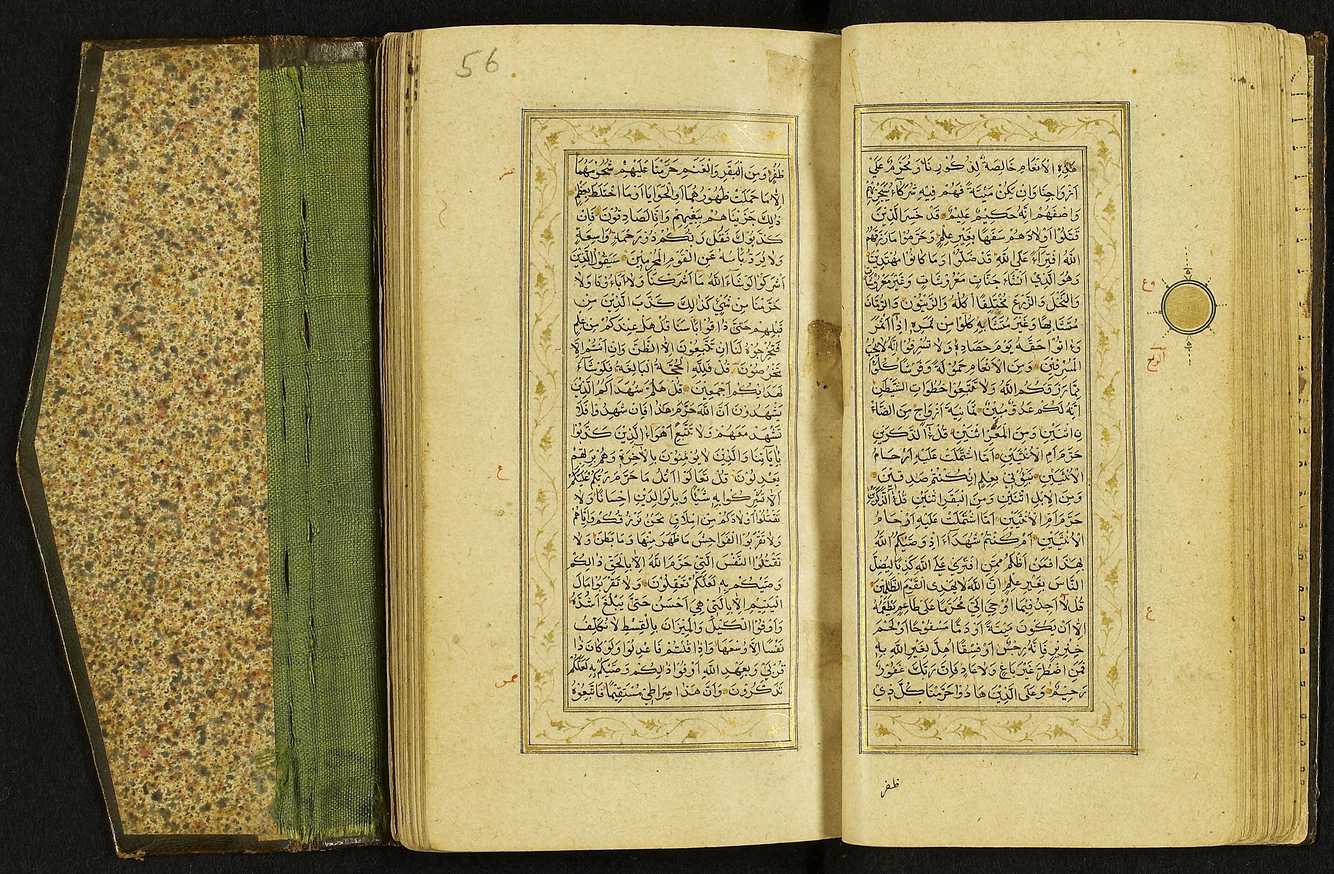 هذه الانعام خالصة لذكورنا ومحرم على
ازواجنا وان يكن ميتة فهم فيه شركاء سيجزيهم
وصفهم انه حكيم عليم قد خسر الذين
قتلوا اولادهم سفها بغير علم وحرموا ما رزقهم
الله افتراء على الله قد ضلوا وما كانوا مهتدين
وهو الذي انشاء جنات معروشات وغير معروشات
والنخل والزرع مختلفا اكله والزيتون والرمان
متشابها وغير متشابه كلوا من ثمره اذا اثمر
واتوا حقه يوم حصاده ولا تسرفوا انه لا يحب
المسرفين ومن الانعام حمولة وفرشا كلوا
مما رزقكم الله ولا تتبعوا خطوات الشيطان
انه لكم عدو مبين ثمانية ازواج من الضاء
ن اثنين ومن المعز اثنين قل ءالذكرين
حرم ام الانثيين اما اشتملت عليه ارحام
الانثيين نبؤني بعلم ان كنتم صادقين
ومن الابل اثنين ومن البقر اثنين قل ءالذكرين
حرم ام الانثيين اما اشتملت عليه ارحام
الانثيين ام كنتم شهداء اذ وصيكم الله
بهذا فمن اظلم ممن افترى على الله كذبا ليضل
الناس بغير علم ان الله لا يهدى القوم الظلمين
قل لا اجد فيما اوحي الى محرما على طاعم يطعمه
الا ان يكون ميتة او دما مسفوحا او لحم
خنزير فانه رجس او فسقا اهل لغير الله به
فمن اضطر غير باغ ولا عاد فان ربك غفور
رحيم وعلى الذين هادوا حرمنا كل ذي
ظفر
ع
56
ظفر ومن البقر والغنم حرمنا عليهم شحومهما
الا ما حملت ظهورهما او الحوايا او ما اختلط بعظم
ذلك جزيناهم ببغيهم وانا لصادقون فان
كذبوك فقل ربكم ذو رحمة واسعة
ولا يرد باسه عن القوم المجرمين سيقول الذين
اشركوا لو شاء الله ما اشركنا ولا اباءونا ولا
حرمنا من شيء كذلك كذب الذين من
قبلهم حتى ذاقوا باسنا قل هل عندكم من علم
فتخرجوه لنا ان تتبعون الا الظن وان انتم الا
تخرصون قل فلله الحجة البالغة فلو شاء
لهديكم اجمعين قل هلم شهداءكم الذين
يشهدون ان الله حرم هذا فان شهدوا فلا
تشهد معهم ولا تتبع اهواء الذين كذبوا
باياتنا والذين لا يؤمنون بالاخرة وهم بربهم
يعدلون قل تعالوا اتل ما حرم ربكم عليكم
الا تشركوا به شيئا وبالوالدين احسانا ولا
تقتلوا اولادكم من املاق نحن نرزقكم واياهم
ولا تقربوا الفواحش ما ظهر منها وما بطن ولا
تقتلوا النفس التي حرم الله الا بالحق ذلكم
وصيكم به لعلكم تعقلون ولا تقربوا مال
اليتيم الا بالتي هي احسن حتى يبلغ اشده
واوفوا الكيل والميزان بالقسط لا نكلف
نفسا الا وسعها واذا قلتم فاعدلوا ولو كان ذا
قربى وبعهد الله اوفوا ذلكم وصيكم به لعلكم
تذكرون وان هذا صراطي مستقيما فاتبعوه
ع